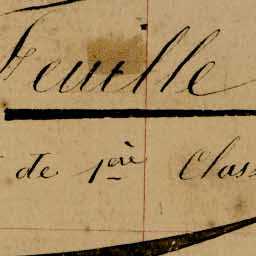 Feuille
de 1ère Class